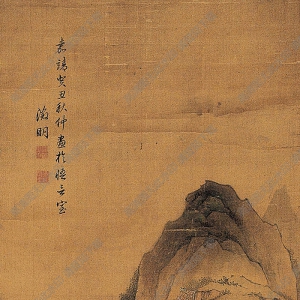 嘉靖癸丑秋仲画於悟言室
徵明